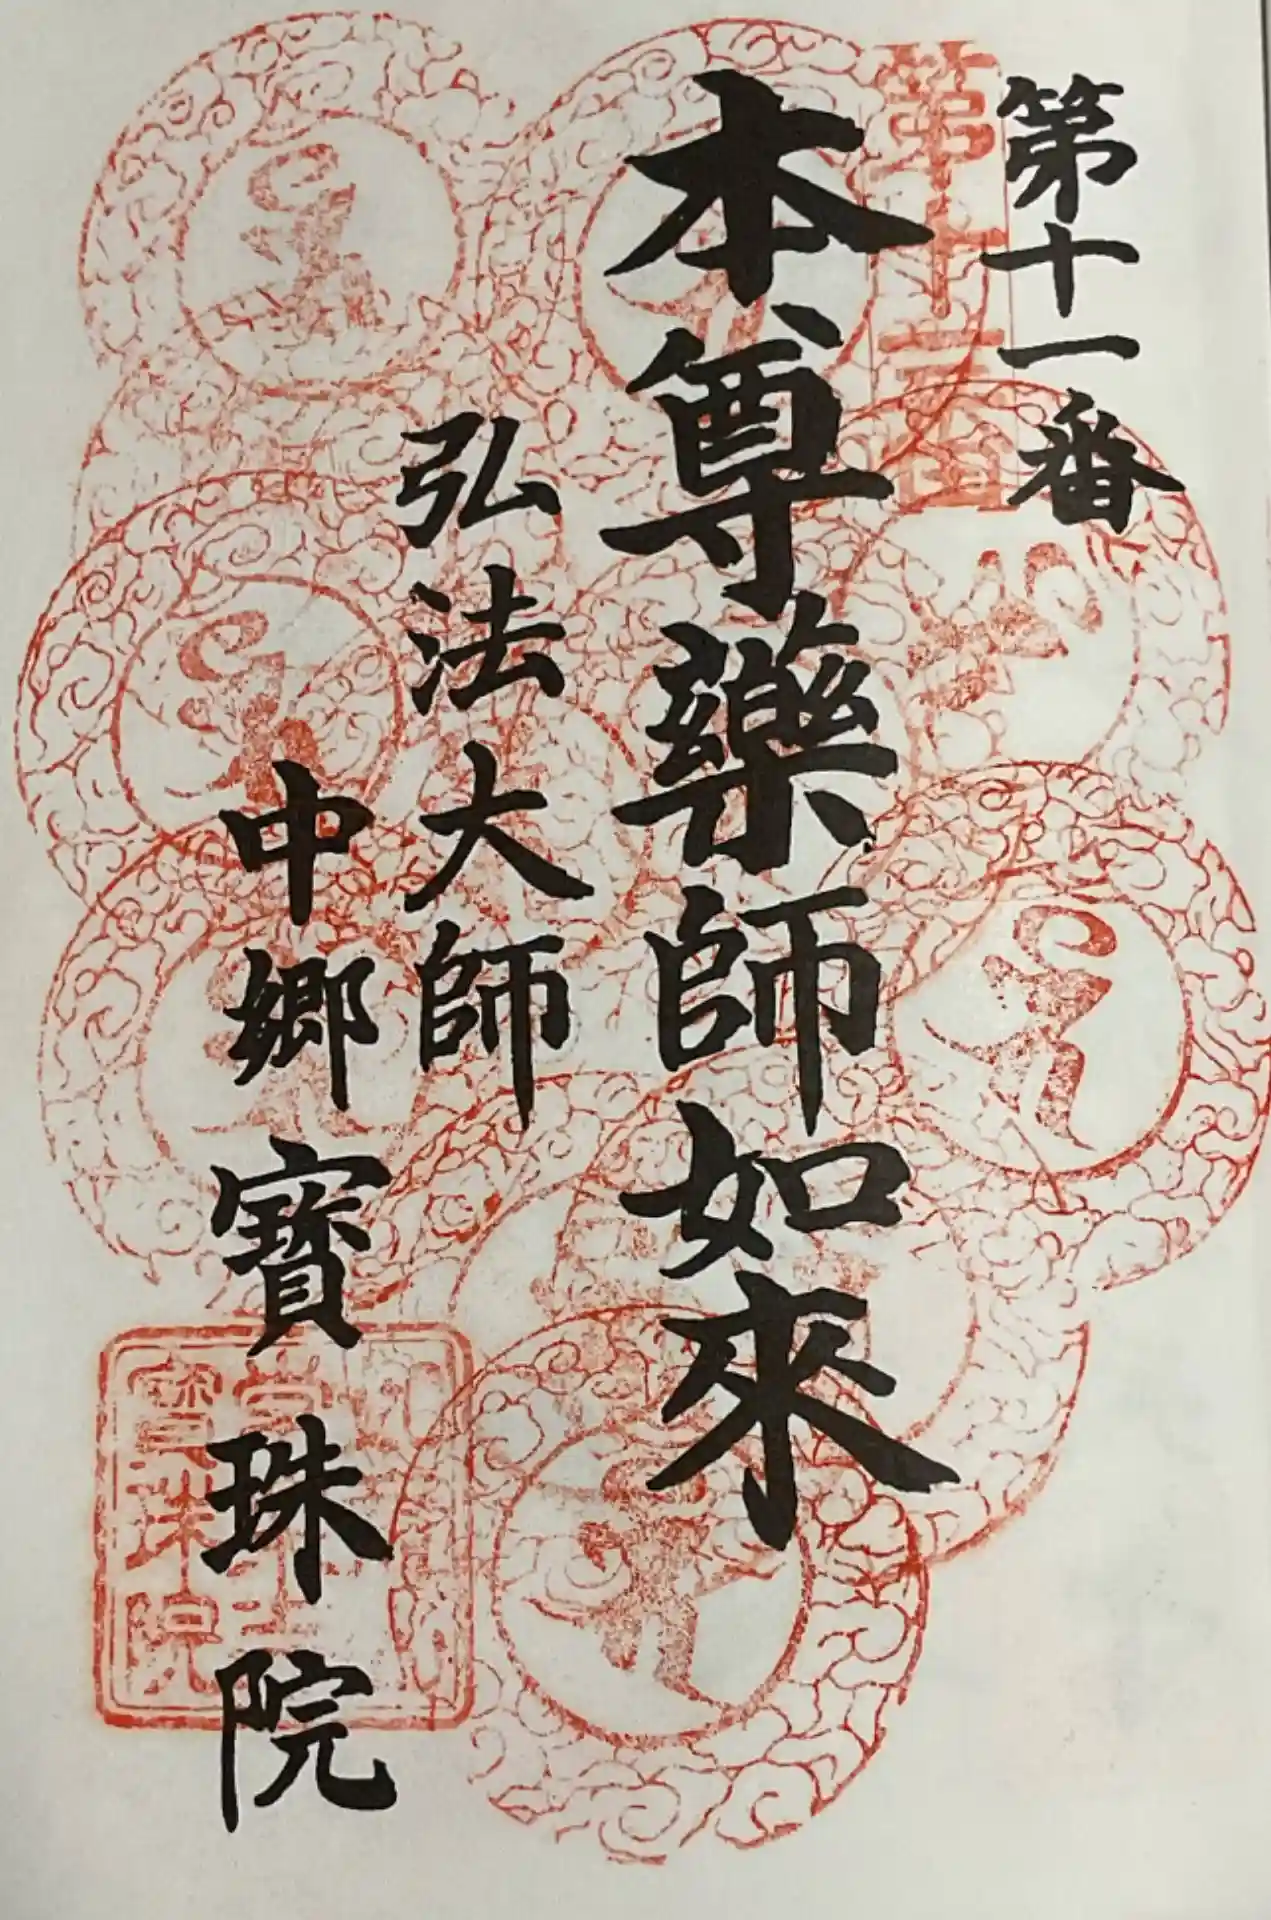 第十一番
本尊薬師如來
弘法大師
中郷寶珠院
寶珠院